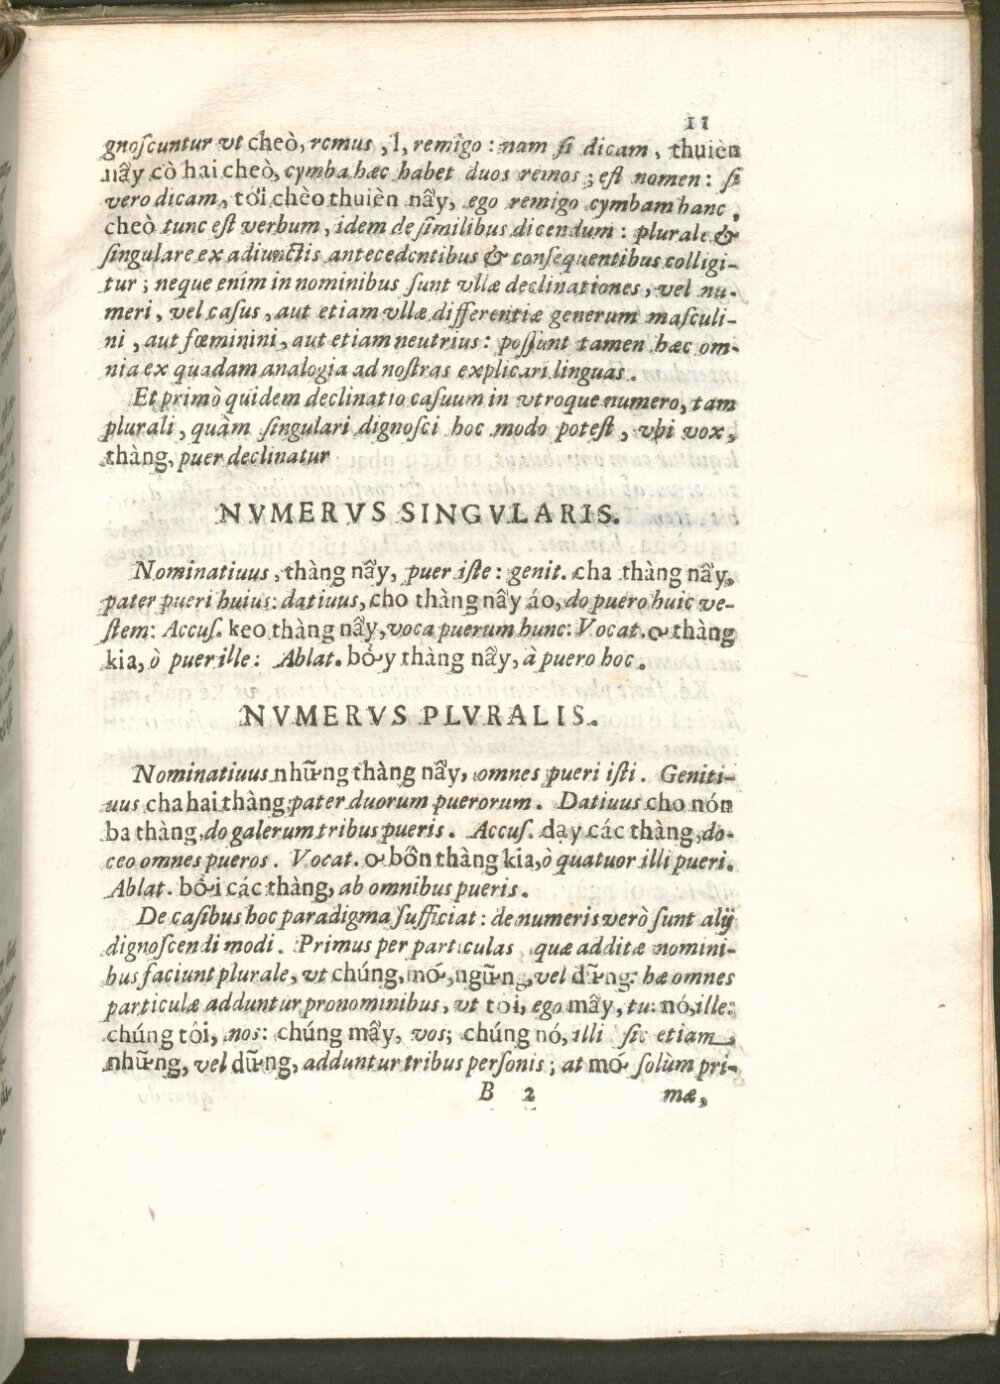 11
gnoſcuntur vt cheò, remus, l, remigo: nam ſi dicam, thuièn
nầy cò hai cheò, cymba hæc habet duos remos; eſt nomen: ſi
vero dicam, tới chèo thuièn nầy, ego remigo cymbam hanc,
cheò tunc eſt verbum, idem de ſimilibus dicendum: plurale &
ſingulare ex adiunctis antecedentibus & conſequentibus colligi-
tur; neque enim in nominibus ſunt vllæ declinationes, vel nu-
meri, vel caſus, aut etiam vllæ differentiæ generum maſculi-
ni, aut fœminini, aut etiam neutrius: poſſunt tamen hæc om-
nia ex quadam analogia ad noſtras explicari linguas.
Et primò quidem declinatio caſuum in vtroque numero, tam
plurali, quàm ſingulari dignoſci hoc modo poteſt, vbi vox,
thàng, puer declinatur
NVMERVS SINGVLARIS.
Nominatiuus, thàng nầy, puer iſte: genit. cha thàng nầy,
pater pueri huius: datiuus, cho thàng nầy áo, do puero huic ve-
ſtem: Accuſ. keo thàng nầy, voca puerum hunc: Vocat. ơ thàng
kia, ò puer ille: Ablat. bở'y thàng nầy, à puero hoc.
NVMERVS PLVRALIS.
Nominatiuus những thàng nầy, omnes pueri iſti. Geniti-
uus cha hai thàng pater duorum puerorum. Datiuus cho nón
ba thàng, do galerum tribus pueris. Accuſ. dạy các thàng, do-
ceo omnes pueros. Vocat. ơ bốn thàng kia, ò quatuor illi pueri.
Ablat. bởi các thàng, ab omnibus pueris.
De caſibus hoc paradigma ſufficiat: de numeris verò ſunt alij
dignoſcendi modi. Primus per particulas, quæ additæ nomini-
bus faciunt plurale, vt chúng, mớ, ngững, vel dững: hæ omnes
particulæ adduntur pronominibus, vt tôi, ego mầy, tu: nó, ille:
chúng tôi, nos: chúng mầy, vos; chúng nó, illi ſic etiam
những, vel dững, adduntur tribus perſonis; at mớ ſolùm pri-
B 2 mæ,